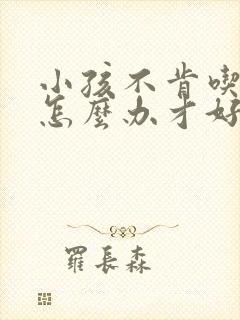 小孩不肯喫
怎麼办才好
羅長森